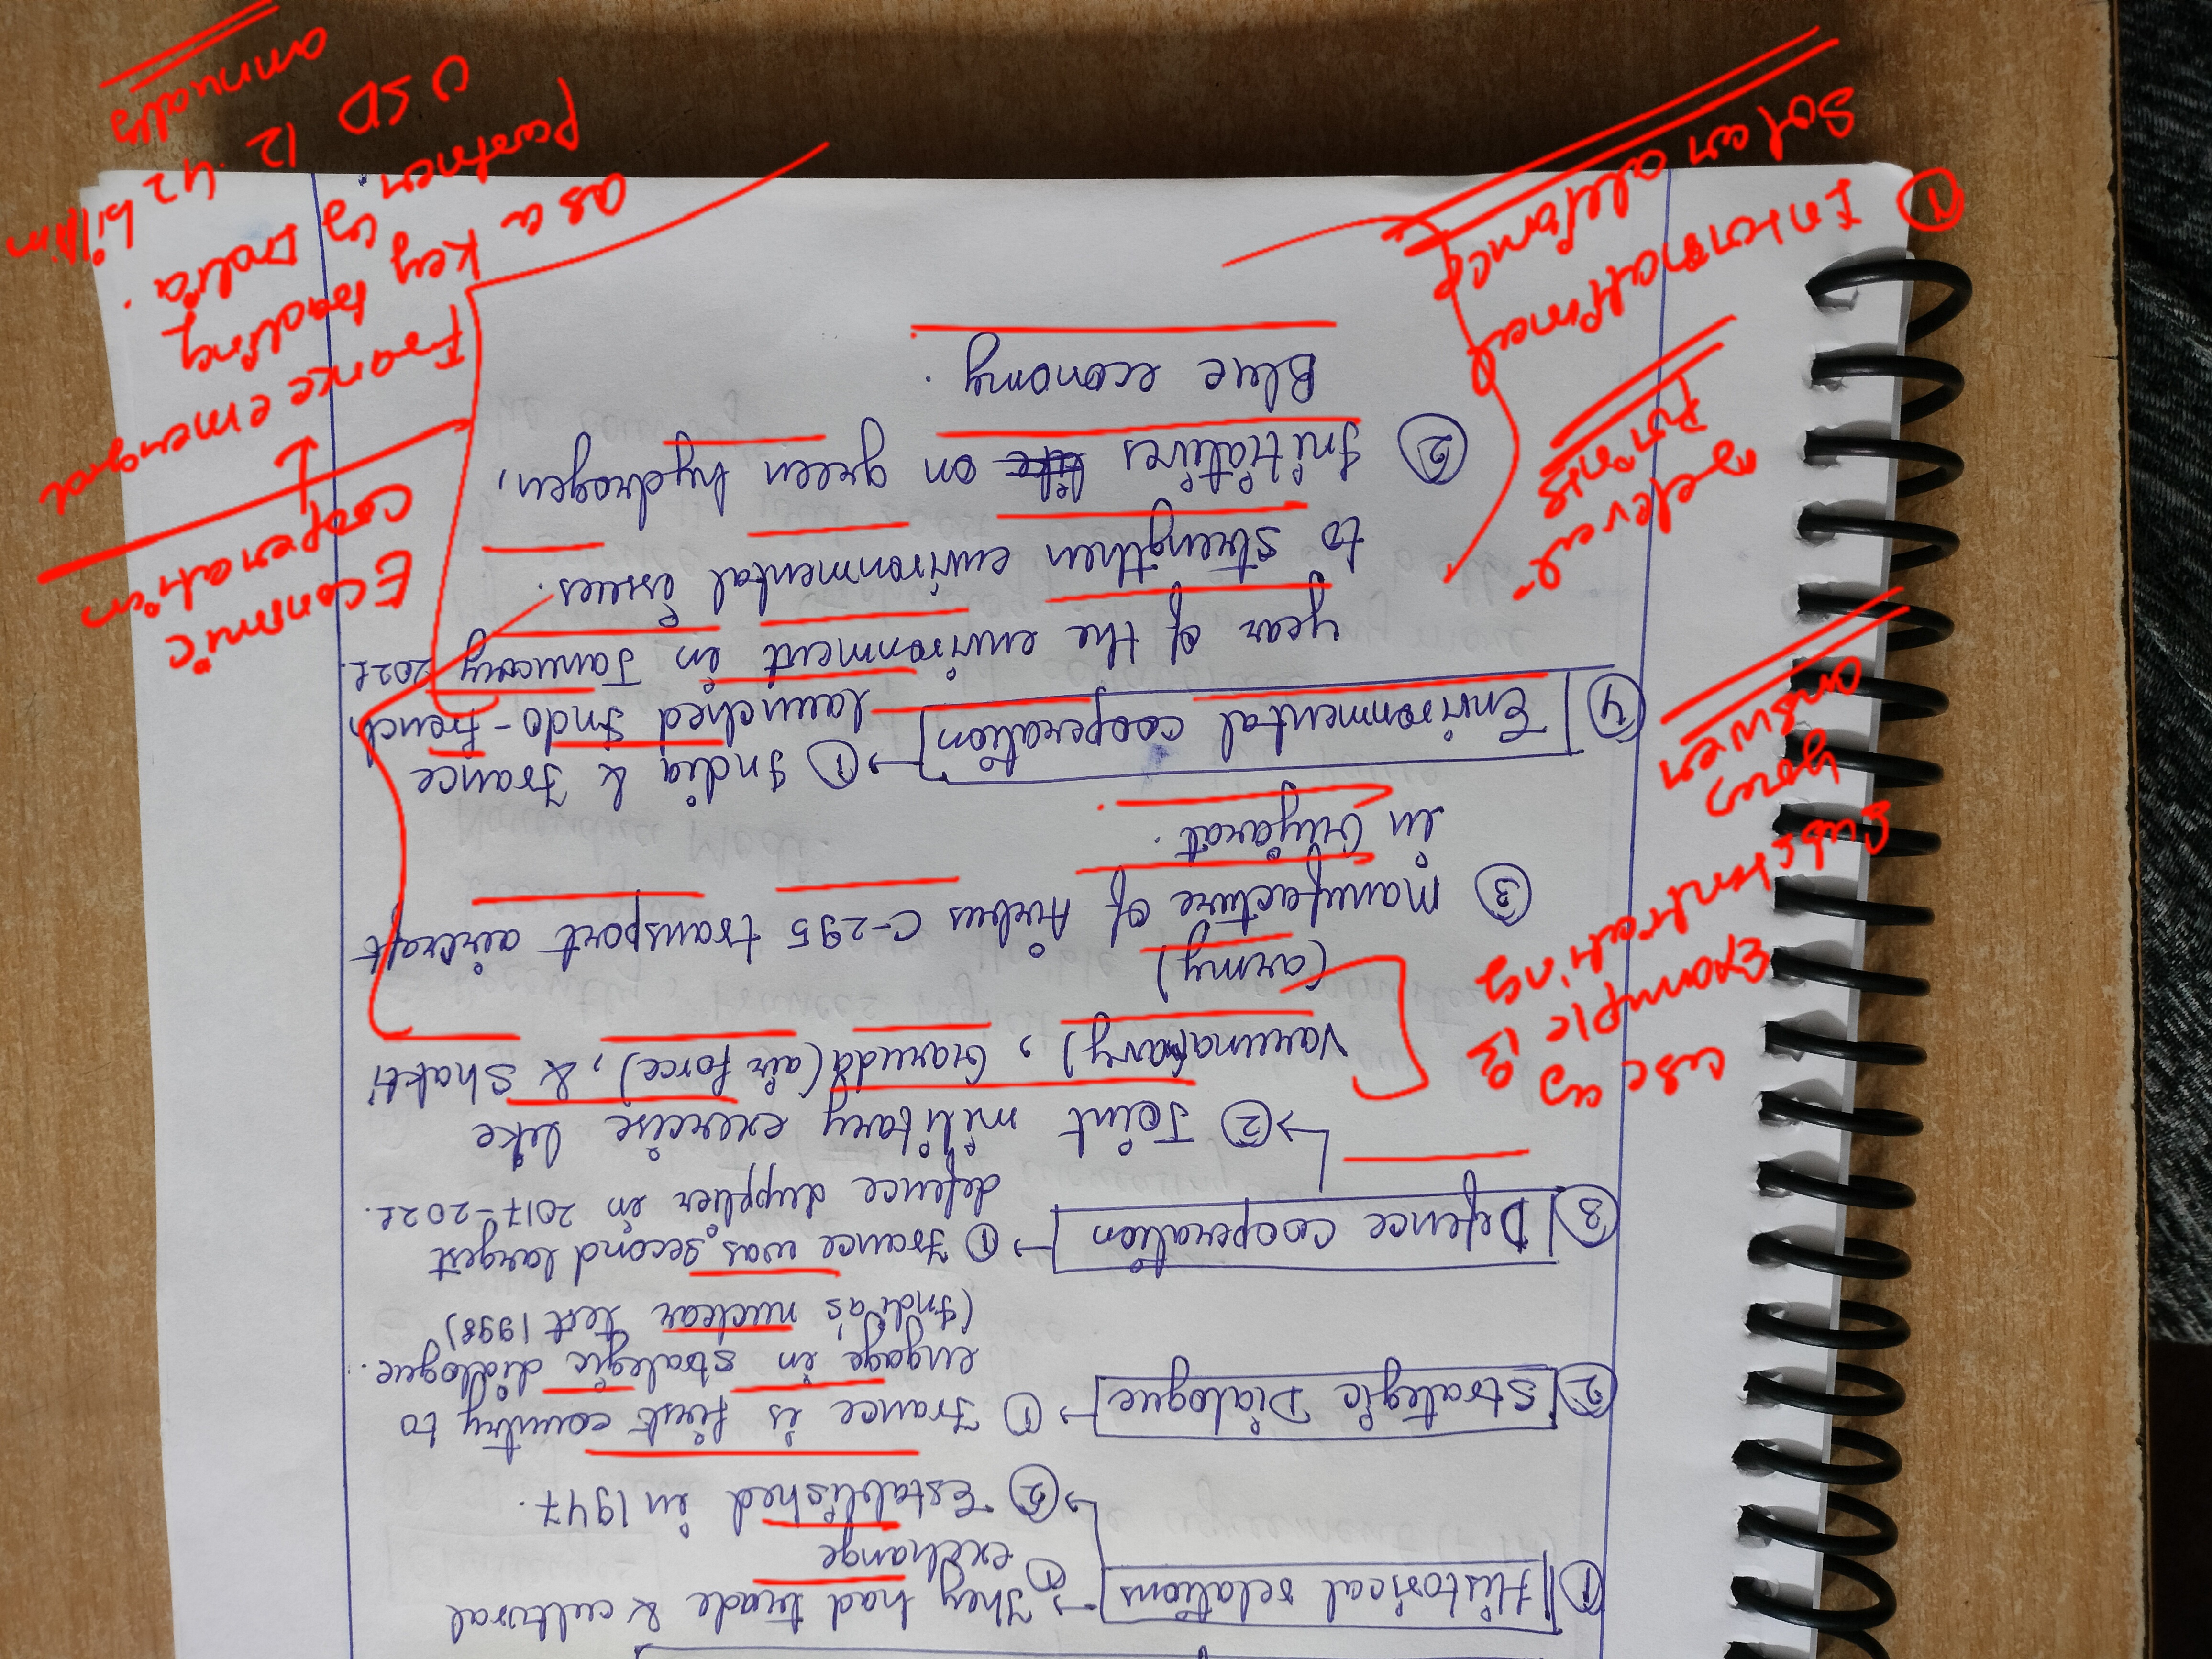 ① Historical relations → ① They had trade & cultural
exchange
→ ② Established in 1947.
② Strategic Dialogue → ① France is first country to
engage in strategic dialogue.
(India's nuclear test 1998)
③ Defence cooperation → ① France was second largest
defence supplier in 2017-2021.
→ ② Joint military exercise like
Varuna(navy), Garuda(air force), & Shakti
(army)
③ Manufacture of Airbus C-295 transport aircraft
in Gujarat.
④ Environmental cooperation → ① India & France
launched Indo-French
year of the environment in January 2021
to strengthen environmental issues.
② Initiatives like on green hydrogen,
Blue economy.
use of
Example is
substantiating
your
answer
Relevent
Points
① International
Solar alliance
Economic
cooperation
↓
France emerged
as a key trading
partner of India.
USD 12.42 billion
annually